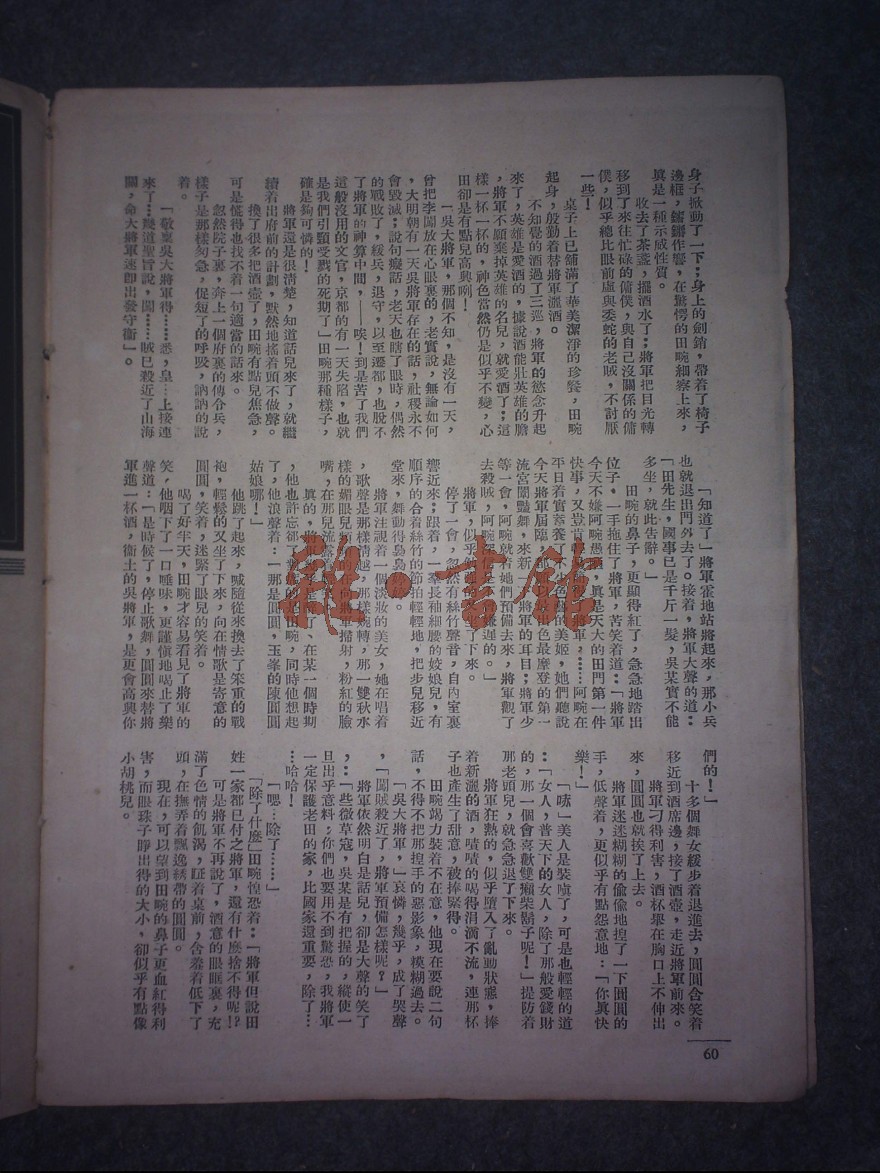 身子掀動了一下；身上的劍銷，帶着了椅子
邊框，鏘鏘作響，在驚愕的田畹細察上來，
眞是一種示威性質。
收去了茶盞，擺酒水了；將軍把目光轉
移到了來往忙碌的傭僕，與自己沒關係的傭
僕，似乎總比眼前虛與委蛇的老賊，不討厭
一些！
桌子上已舖滿了華美潔淨的珍餐，田畹
起身，殷勤着替將軍灑酒。
不知覺的酒過了三巡，將軍的慾念升起
來了，英雄是愛酒的，據說酒能壯英雄的膽
，將軍不願棄掉英雄的名兒，就愛酒了；這
樣一杯一杯的，神色當然仍是似乎不變，心
田卻是有點兒高興咧！
「吳大將軍，那個不知，是沒有一天，
曾把李闖放在心眼裏的，老實說，無論如何
，大明朝有一天吳將軍存在的話，社稷永不
會毀滅；說句癡話，老天也瞎了眼時，偶然
的戰敗了，緩兵，退守，以至遷都，也脫不
了將軍的神算中間，——唉！到是苦了我們
這般沒用的文官，京都的有一天失陷，也就
是我們引頸受戮的死期了」田畹那種樣子，
確是夠可憐的！
將軍還是很清楚，知道話兒來了，就繼
續着出府前的計劃，默然地搖着頭不做聲。
換了很多把酒壺了，田畹有點兒焦急，
可是懂得也找不着一句適當的話來。
忽然院子裏，奔上一個府裏的傳令兵，
樣子是那樣匆急，促短了的呼吸，訥訥的說
着。
「敬稟吳大將軍得……悉，皇…上接連
來了…幾道聖旨說，闖……賊已殺近了山海
關，命大將軍速卽出發守衞」。
「知道了」將軍霍地站將起來，那小兵
也就退出門外去了。接着，將軍大聲的道：
「田先生，國事已是千斤一髮，吳某實不能
多坐，就此告辭。」
田畹的鼻子，更顯得紅了，急急地踏出
位子。一手拖住了將軍，苦笑着道：「將軍
今天不嫌阿畹愚酒，眞是天大的田門第一件
快事，又豈肯
將軍，……阿畹在
平日着實蓄養了
色藝的美姬，她們聽說
今天將軍屆臨，
色最摩登的第一
流宮闈豔舞，來新
將軍的耳目；將軍少
等一會，阿畹就着她們預備去來，將軍觀了
去殺賊，阿畹
嫌遲的。」
將軍，似乎
了下來。
停了一會，忽然有絲竹聲音，自內室裏
響近來；跟着，一羣長袖細腰的姣娘兒，有
順序的合着絲竹的節拍輕輕地，把步兒移近
堂來，舞動得裊裊
將軍注視着一個淡妝的美女，她在唱着
，歌聲是那樣清越，那樣婉轉，那一雙秋水
樣的媚眼兒
在向將軍掃射，粉紅的臉
嘴，在那兒流露
眞的，將軍
了、在某一個時期
，他也許忘卻了
田畹，同時他想起
了，他浪聲着：—那是圓圓，玉峯的陳圓圓
姑娘哪！」
他跳了起來，喊隨從來換去了笨重的戰
袍，輕鬆的又坐了下來，向在情歌是寄意的
圓圓，笑着，迷緊了眼兒的笑着。
喝了好半天，田畹才容易看見了將軍的
笑，他咽下了一口唾味，更謹愼地喝止了樂
聲道：「是時候了，停止歌舞，圓圓來替將
軍進一杯酒，衞土的吳將軍，是更會高興你
們的！」
十多個舞女緩步着退進去，圓圓含笑着
移近到酒席邊，接了酒壺，走近將軍前來。
將軍刁得利害，酒杯舉在胸口上不伸出
來，圓圓也就挨了上去。
將軍迷迷糊糊的偷偷地揑了一下圓圓的
手，低聲着，更似乎有點怨意地：「你眞快
樂！」
「嗦」美人是裝嗔了，可是也輕輕的道
：「女人，普天下的女人，除了那般愛錢財
的，那一個會喜歡雙癩柴鬍子呢！」提防着
那老頭兒，就急急退了下來。
將軍狂熱的，似乎墮入了亂動狀態，捧
着新灑的酒，嘖嘖的喝得涓滴不流，連那杯
子也產生了甜意，被捧緊得。
田畹竭力裝着不在意，他現在要說二句
話，不得不把那揑手的惡影象，模糊過去。
「吳大將軍，」哀憐，幾乎，成了哭聲
，「闖賊殺近了，將軍預備怎樣呢？」
將軍依然明白是話兒，卻是大聲的笑了
，：「些微草寇，吳某是有把握的，縱使一
旦出乎意料；你們也要用不到驚恐，我將軍
一定保護老田的家，比國家還重要，除了…
…哈哈！
「嗯…除了……」
「除了什麼」田畹惶恐着：「將軍但說田
姓一家都已付之將軍，還有什麼捨不得呢！？
可是將軍不再說了，酒意的眼眶裏，充
滿了色情的飢渴，眐着桌前，含羞着低下了
頭，在撫弄着飄逸綉帶的圓圓。
現在，可以望到田畹的鼻子更血紅得利
害，而眼珠子睜出得的大小，卻似乎有點像
小胡桃兒。
60